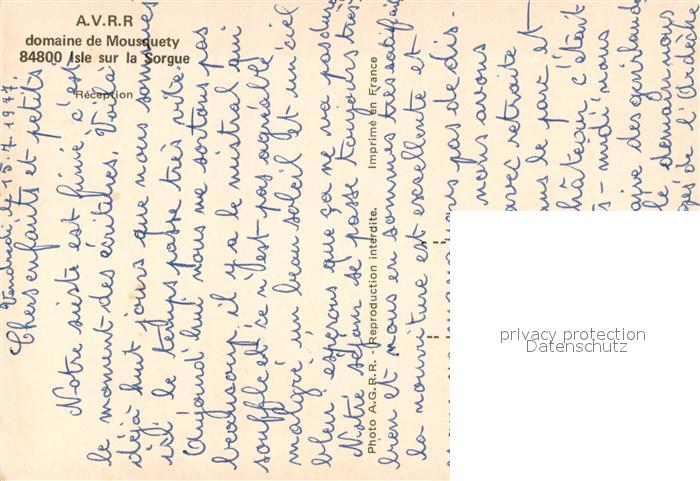 A.V.R.R
domaine de Mousquety
84800 Isle sur la Sorgue
Réception
Vendredi le 15.7.1977.
Chers enfants et petits
Notre sieste est finie c'est
le moment des écritures. Voilà
déjà huit jours que nous sommes
ici le temps passe très vite
Aujourd'hui nous ne sortons pas
beaucoup il y a le mistral qui
souffle et ce n'est pas agréable
malgré un beau soleil et un ciel
bleu espérons que ça ne va pas durer
Notre séjour se passe toujours très
bien et nous en sommes très satisfait
la nourriture est excellente et
pas de dis-
nous avons
avec retraite
le parc et
château c'était
s-midi nous
des guirlandes
demain nous
de l'Ardèche
Photo A.G.R.R. - Reproduction interdite. Imprimé en France
privacy protection
Datenschutz